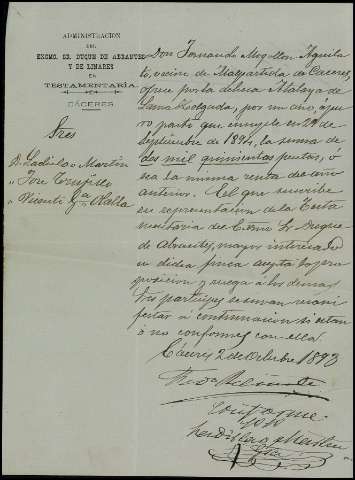 ADMINISTRACIÓN
DEL
EXCMO. SR. DUQUE DE ABRANTES
Y DE LINARES
EN
TESTAMENTARÍA
CÁCERES
Sres
D. Ladislao Martín
" Jose Trujillo
" Vicente Gª Olalla
Don Fernando Mogollon Aguila
do, vecino de Malpartida de Cáceres,
ofrece por la dehesa Atalaya de
Lena Holgada, por un año, á pu
ro pasto que empieza en 29 de
Septiembre de 1894, la suma de
dos mil quinientas pesetas, ó
sea la misma renta del año
anterior. El que suscribe
en representacion de la Testa
mentaria del Exmo Sr Duque
de Abrantes, mayor interesado
en dicha finca acepta la pro
posicion y ruega á los demas
Sres participes se sirvan mani
festar á continuacion si estan
ó no conformes con ella.
Cáceres 2 de Octubre 1893
Conforme
Ladislao Martin